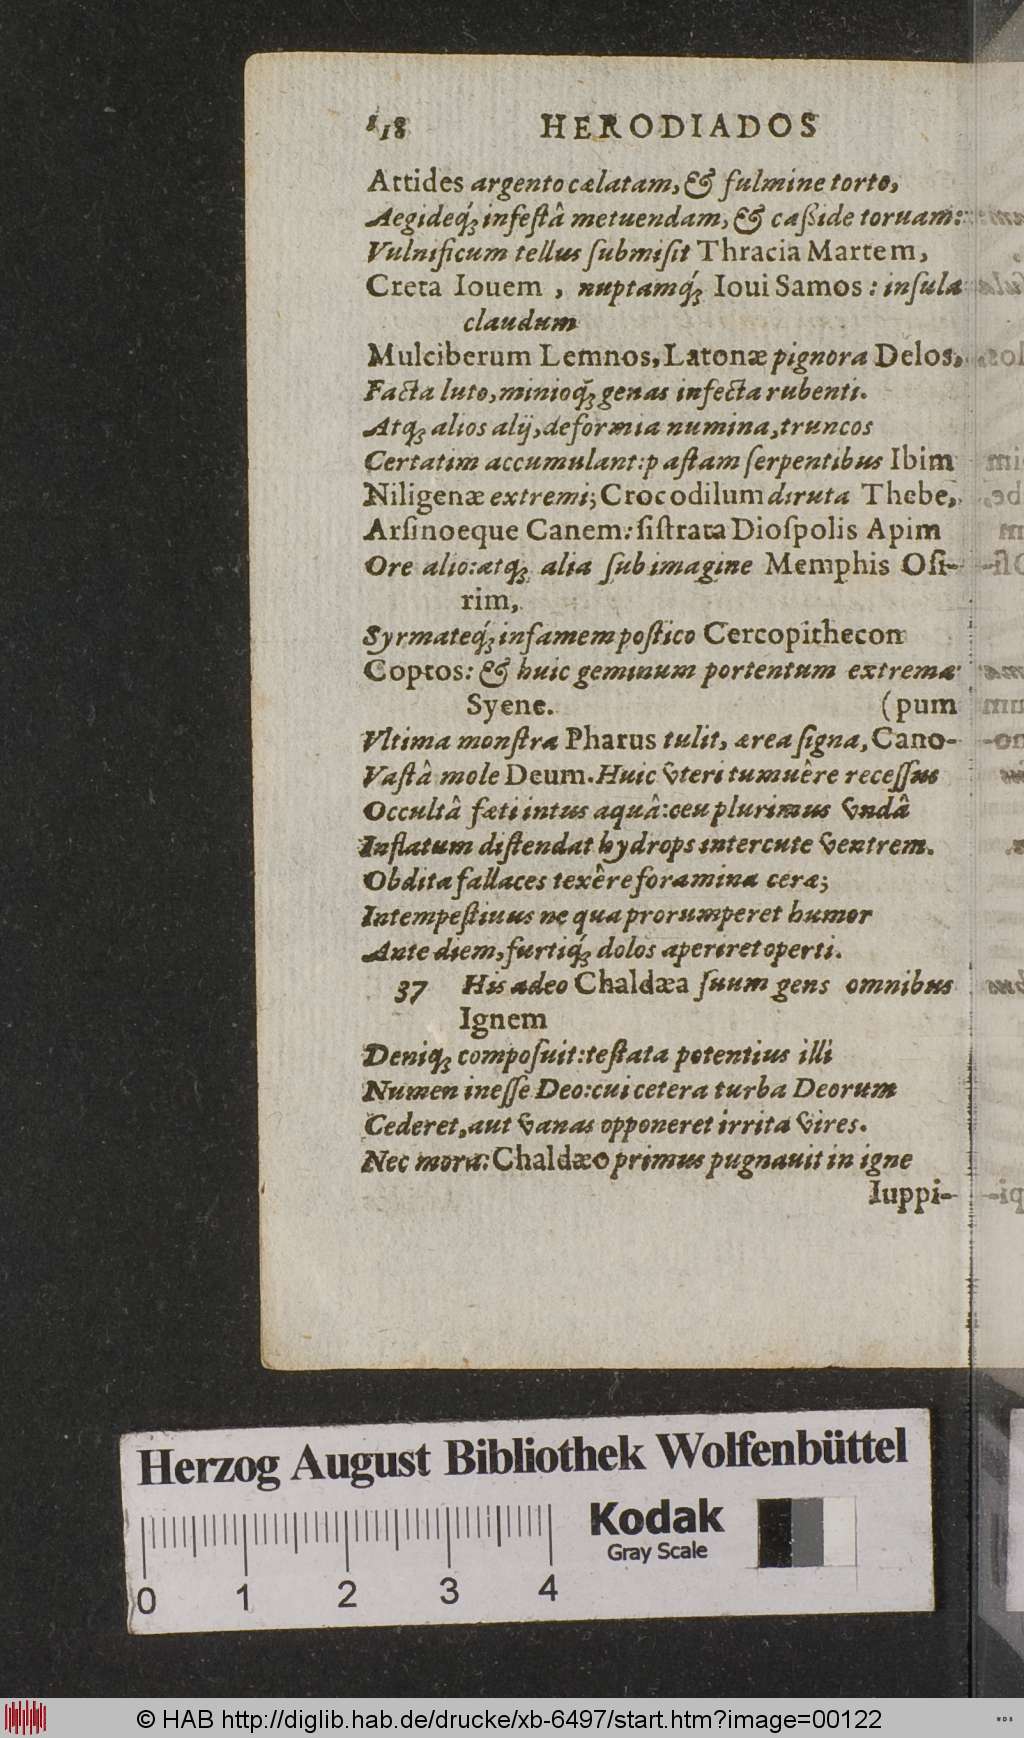 118 HERODIADOS
Attides argento cælatam, & fulmine torto,
Aegideq́; infestâ metuendam, & caßide toruam:
Vulnificum tellus submisit Thracia Martem,
Creta Iouem , nuptamq́; Ioui Samos : insula
claudum
Mulciberum Lemnos, Latonæ pignora Delos,
Facta luto, minioq́; genas infecta rubenti.
Atq; alios alij, deformia numina, truncos
Certatim accumulant: pastam serpentibus Ibim
Niligenæ extremi; Crocodilum diruta Thebe,
Arsinoeque Canem: sistrata Diospolis Apim
Ore alio: atq; alia sub imagine Memphis Osi-
rim,
Syrmateq́; infamem postico Cercopithecon
Coptos: & huic geminum portentum extremæ
Syene. (pum
Vltima monstra Pharus tulit, ærea signa, Cano-
Vastâ mole Deum. Huic vteri tumuêre recessus
Occultâ fæti intus aquâ: ceu plurimus vndâ
Inflatum distendat hydrops intercute ventrem.
Obdita fallaces texêre foramina ceræ;
Intempestiuus ne qua prorumperet humor
Ante diem, furtiq́; dolos aperiret operti.
37 His adeo Chaldæa suum gens omnibus
Ignem
Deniq; composuit: testata potentius illi
Numen inesse Deo: cui cetera turba Deorum
Cederet, aut vanas opponeret irrita vires.
Nec mora: Chaldæo primus pugnauit in igne
Iuppi-
Herzog August Bibliothek Wolfenbüttel
Kodak
Gray Scale
0 1 2 3 4
© HAB http://diglib.hab.de/drucke/xb-6497/start.htm?image=00122